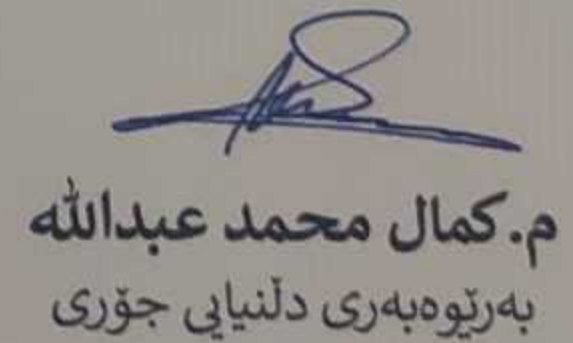 م. كمال محمد عبدالله
بەڕێوەبەری دڵنیایی جۆری